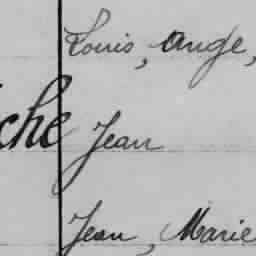 Louis, Ange,
che Jean
Jean, Marie